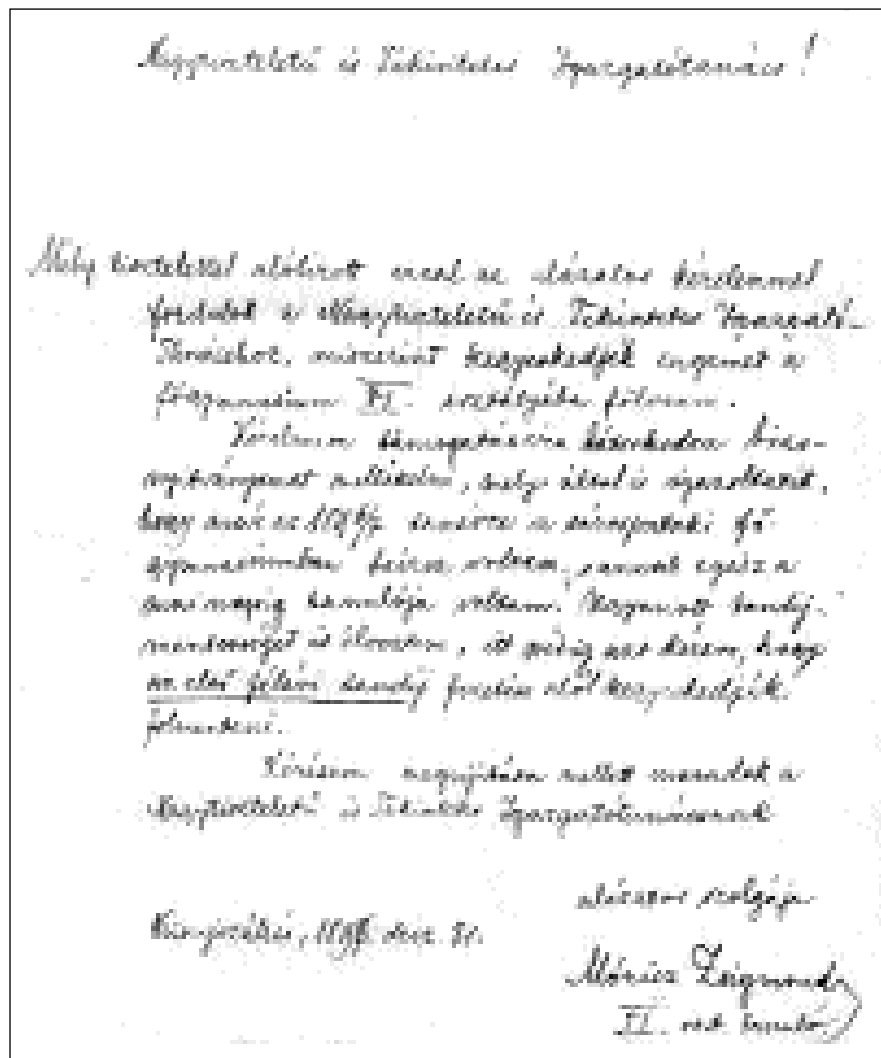 Nagytiszteletű és Tekintetes Igazgatótanács!
Mély tisztelettel alólírott azzal az alázatos kérelemmel
fordulok a Nagytiszteletű és Tekintetes Igazgató-
Tanácshoz, miszerint kegyeskedjék engemet a
főgymnasium VI. osztályába fölvenni.
Kérelmem támogatására bátorkodom bizo-
nyítványomat mellékelni, mely által is igazoltatik,
hogy már az tanévre a sárospataki fő
gymnasiumban beírva voltam, s annak egész a
mai napig tanulója voltam. tandíj-
mentességet is élveztem, itt pedig arra kérem, hogy
az első félévi tandíj fizetése alól kegyeskedjék
fölmenteni.
Kérésem megújítása mellett maradok a
Nagytiszteletű és Tekintetes Igazgatótanácsnak
alázatos szolgája
Kisújszállás, 31.
Móricz Zsigmond
VI. tanuló